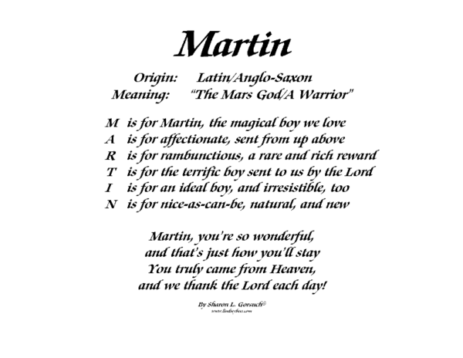 Martin
Origin: Latin/Anglo-Saxon
Meaning: "The Mars God/A Warrior"
M is for Martin, the magical boy we love
A is for affectionate, sent from up above
R is for rambunctious, a rare and rich reward
T is for the terrific boy sent to us by the Lord
I is for an ideal boy, and irresistible, too
N is for nice-as-can-be, natural, and new
Martin, you're so wonderful,
and that's just how you'll stay
You truly came from Heaven,
and we thank the Lord each day!
By Sharon L.